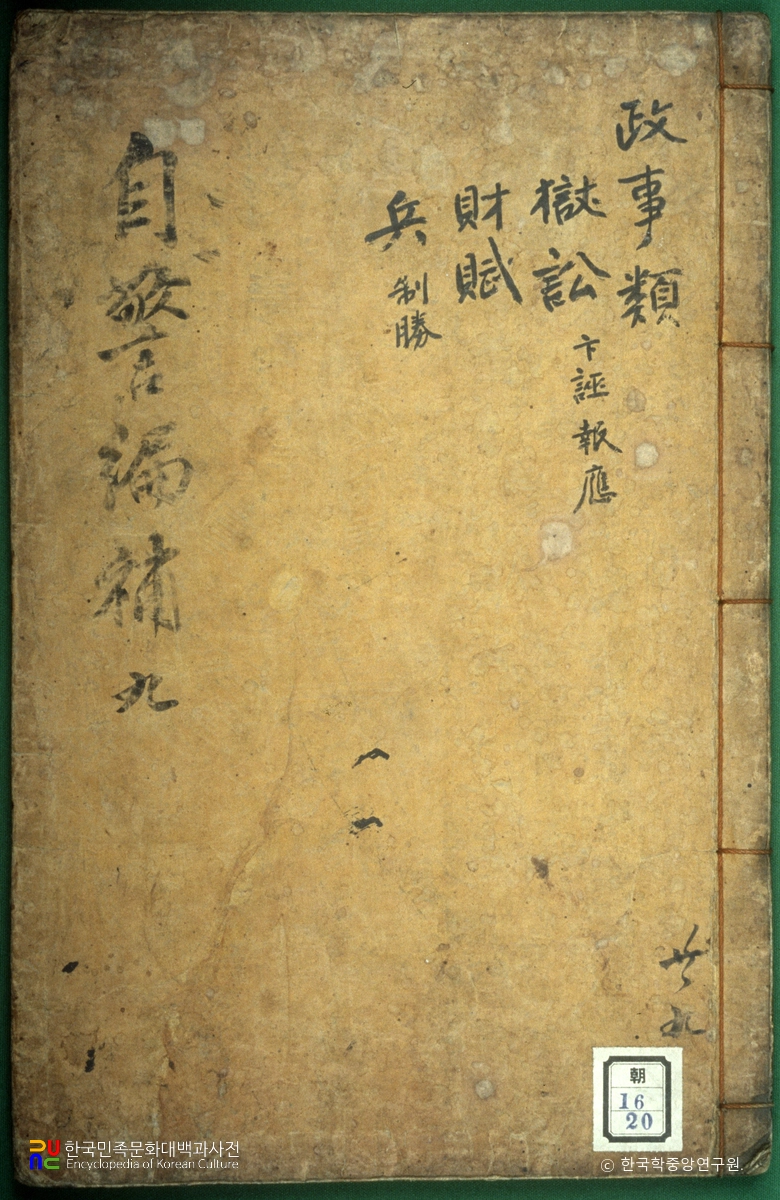 政事類
獄訟 卞誣 報應
財賦
兵 制勝
自警編補 九
共九
朝
16
20
한국민족문화대백과사전
Encyclopedia of Korean Culture
ⓒ 한국학중앙연구원